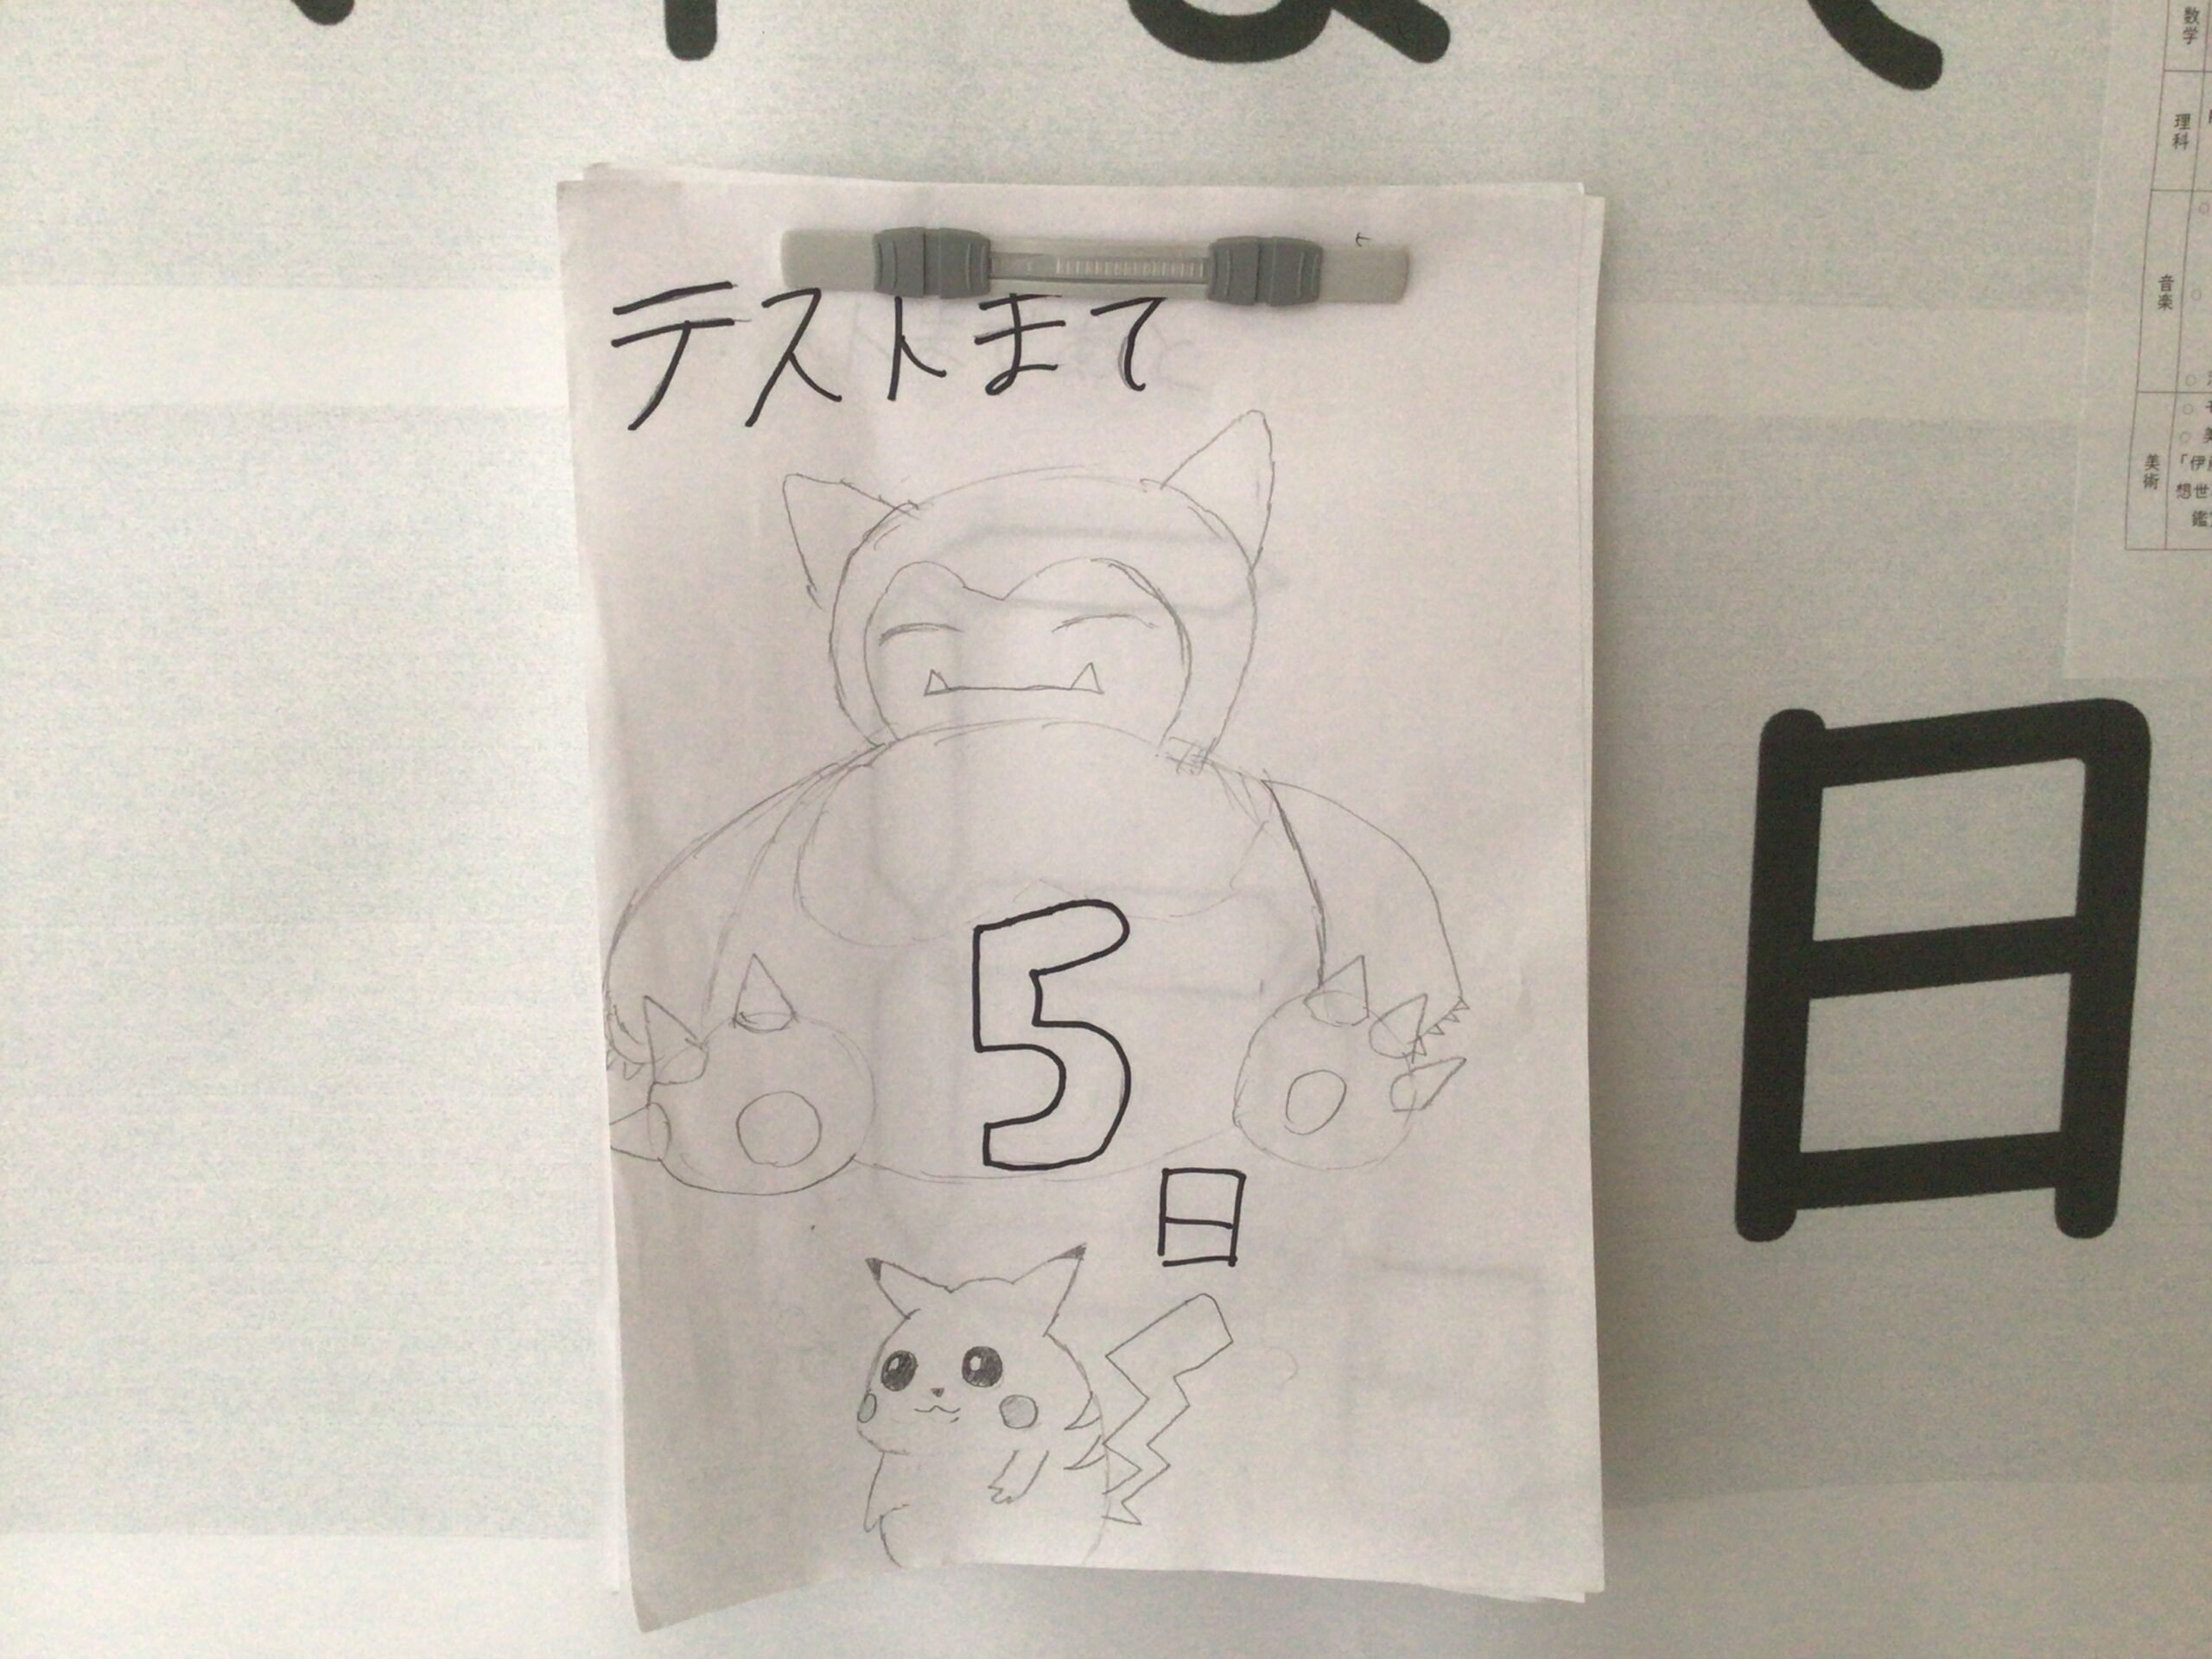 テストまで
5
日
日
数学
理科
音楽
美術